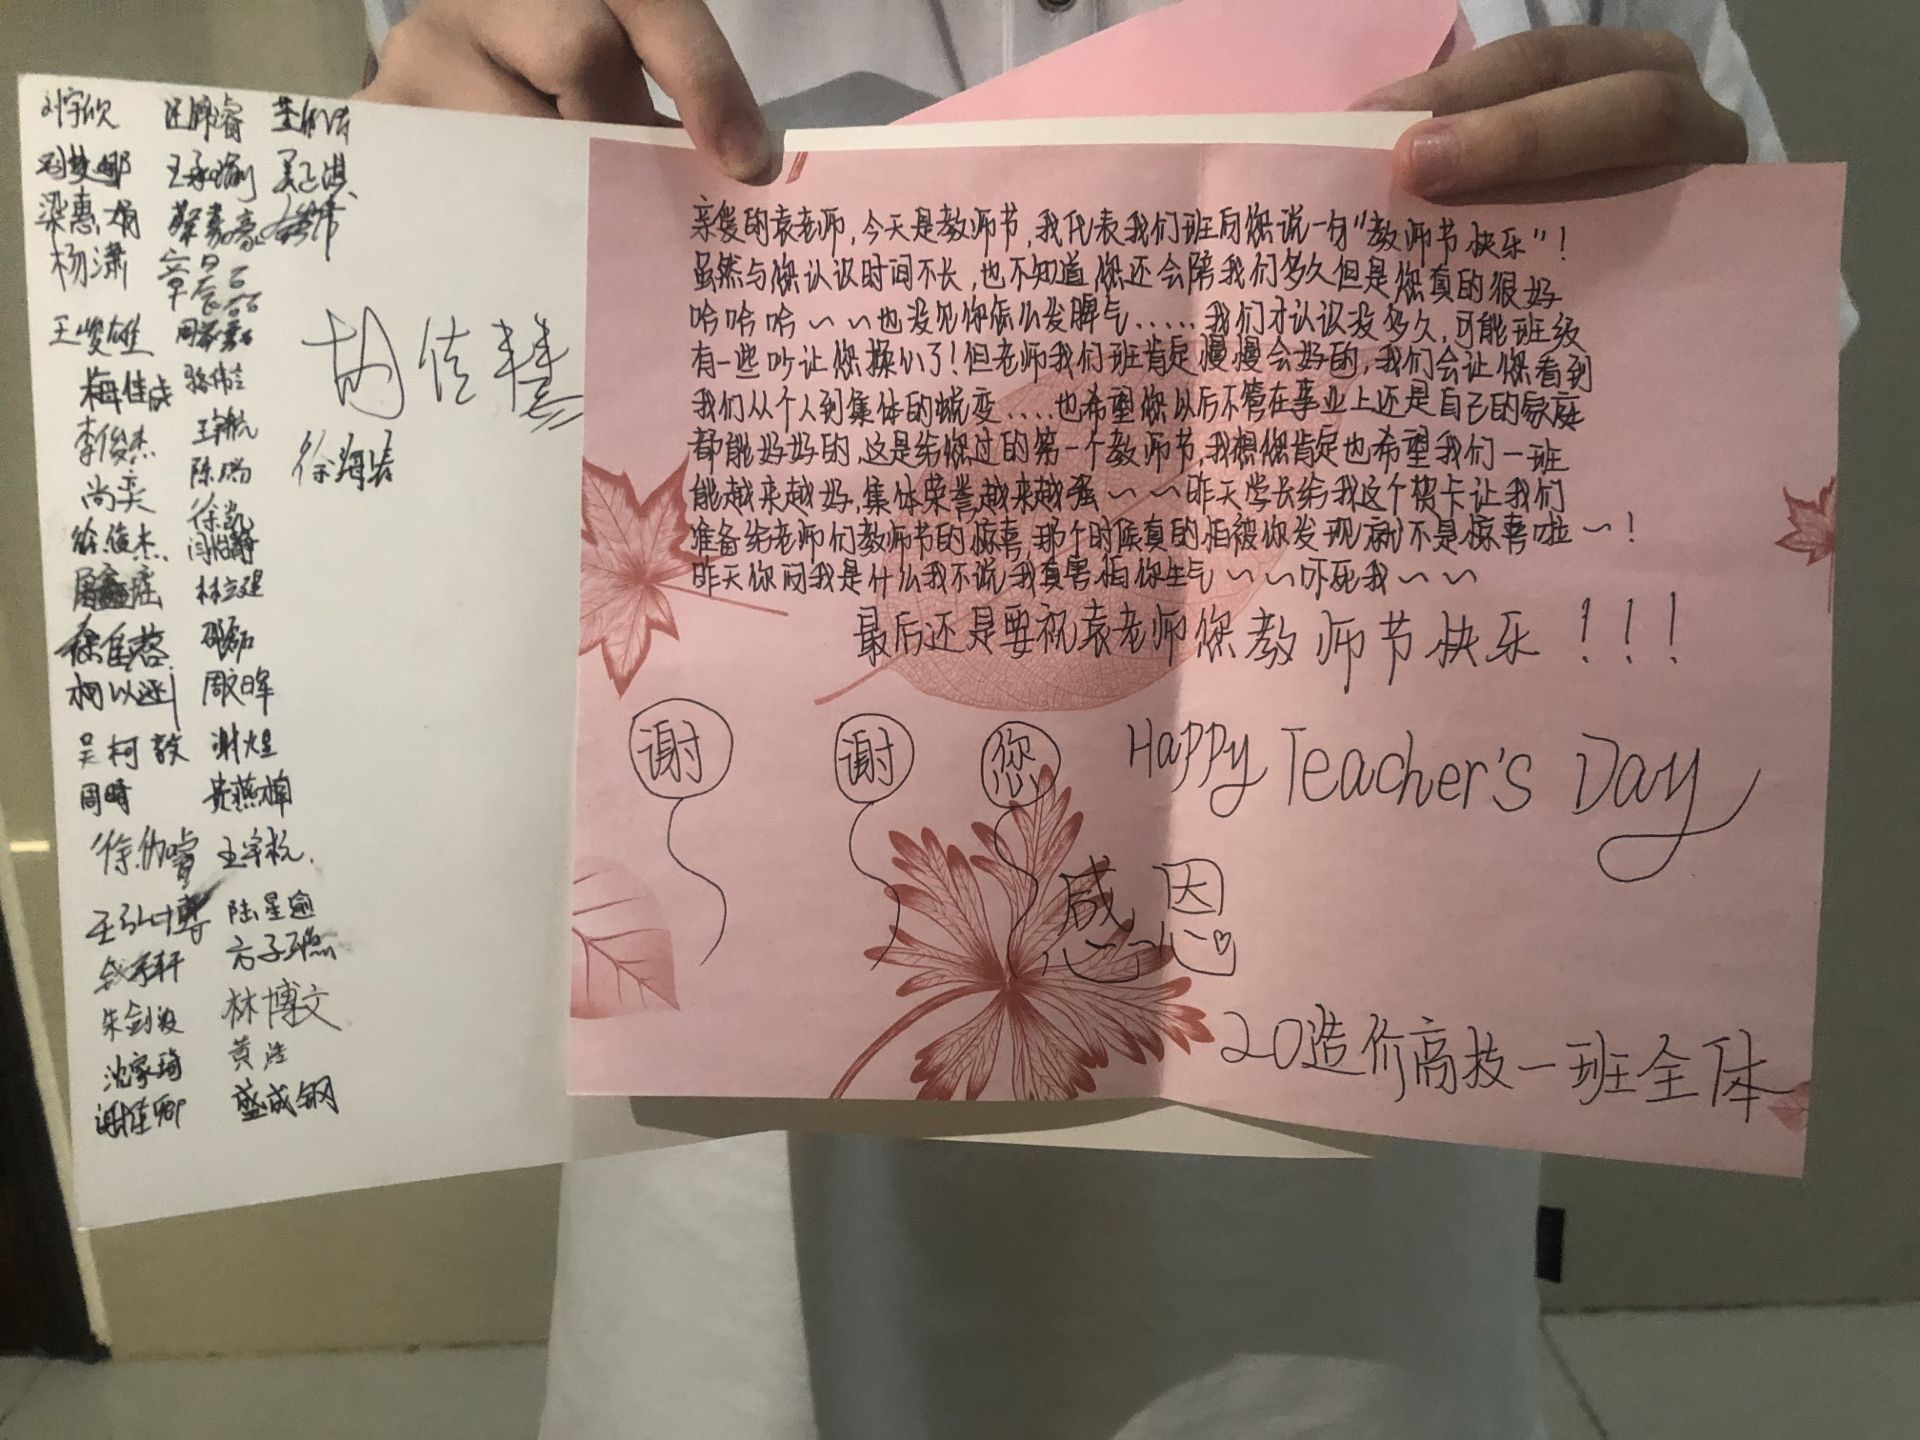 刘宇欣
梁惠娟
杨潇
王俊雄
梅佳成
李俊杰
尚奕
徐俊杰
徐佳蓉
吴柯毅
周晴
王弘博
朱剑波
沈家琦
谢佳卿
王承瑜
章晨磊
骆伟立
陈瑞
徐凯
闫怡静
林立廷
周文晖
谢煜
黄燕楠
王宇杭
陆星逾
方子燕
林博文
黄浩
盛成钢
胡佳慧
亲爱的袁老师,今天是教师节,我代表我们班向您说一句“教师节快乐”!
虽然与您认识时间不长,也不知道您还会陪我们多久但是您真的很好
吟吟吟~~也没见你怎么发脾气.....我们才认识没多久,可能班级
有一些吵让您操心了!但老师我们班肯定慢慢会好的,我们会让您看到
我们从个人到集体的蜕变....也希望您以后不管在事业上还是自己的家庭
都能好好的,这是给您过的第一个教师节,我想您肯定也希望我们一班
能越来越好,集体荣誉越来越强~~昨天学长给我这个贺卡让我们
准备给老师们教师节的惊喜,那个时候真的怕被你发现就不是惊喜啦~!
昨天你问我是什么我不说我真害怕你生气~~吓死我~~
最后还是要祝袁老师您教师节快乐!!!
谢 谢 您
Happy Teacher's Day
感恩
20造价高技一班全体